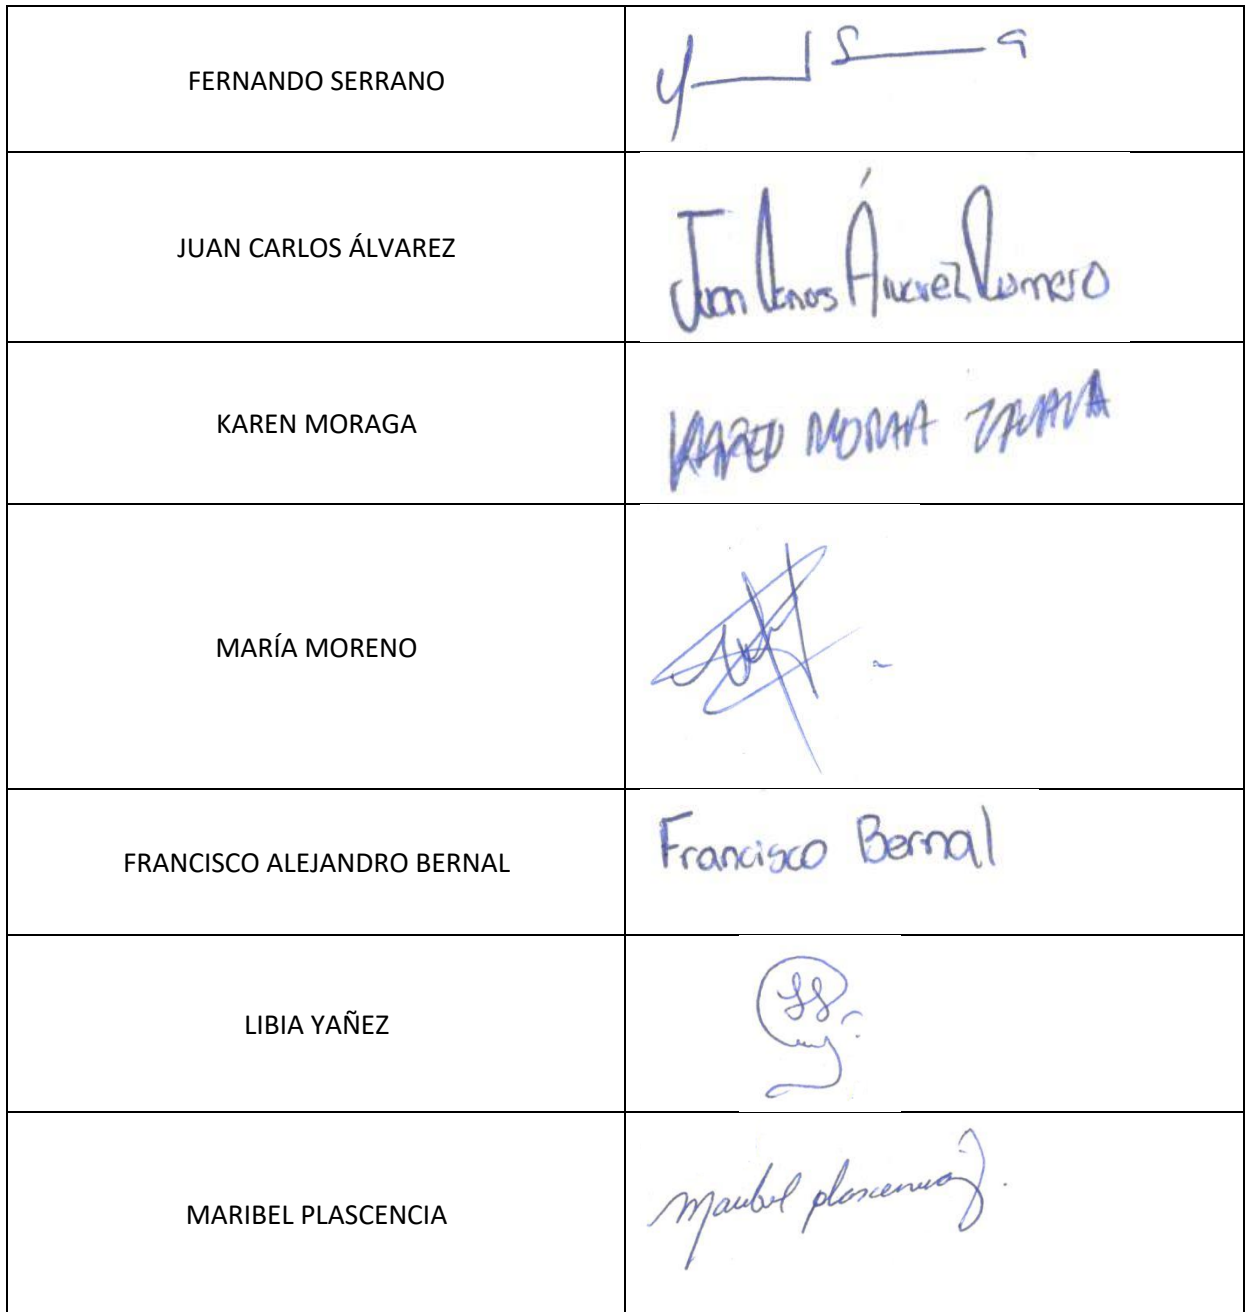 FERNANDO SERRANO
JUAN CARLOS ÁLVAREZ
Juan Carlos Álvarez Romero
KAREN MORAGA
KAREN ZAVALA
MARÍA MORENO
FRANCISCO ALEJANDRO BERNAL
Francisco Bernal
LIBIA YAÑEZ
MARIBEL PLASCENCIA
Maribel plascencia